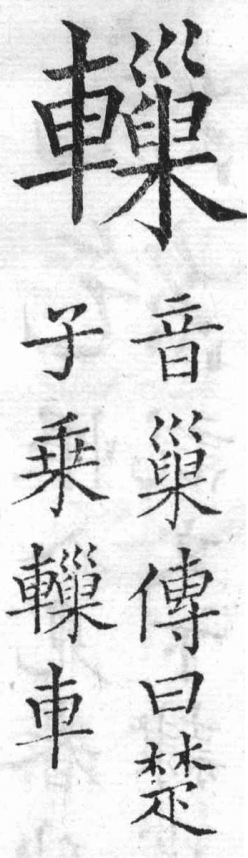 轈
音巢傳曰楚
子乗轈車